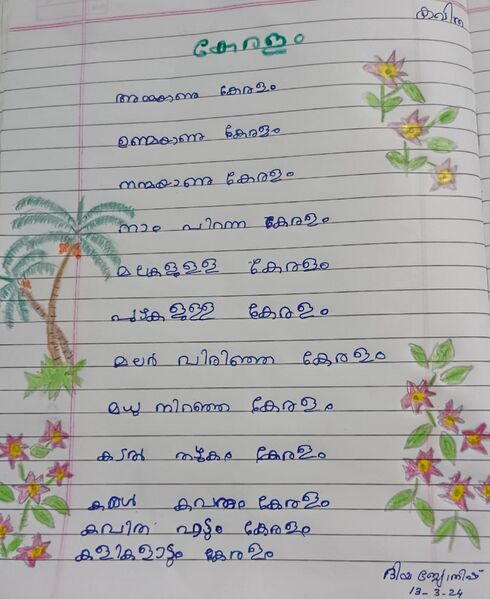 കവിത
കേരളം
അമ്മയാണു കേരളം
ഉണ്മയാണു കേരളം
നന്മയാണു കേരളം
നാം പിറന്ന കേരളം
മലകളുള്ള കേരളം
പുഴകളുള്ള കേരളം
മലർ വിരിഞ്ഞ കേരളം
മധു നിറഞ്ഞ കേരളം
കടൽ തഴുകും കേരളം
കരൾ കവരും കേരളം
കവിത പാടും കേരളം
കളികളാടും കേരളം
ദിയ ജ്യോതിഷ്
13-3-24